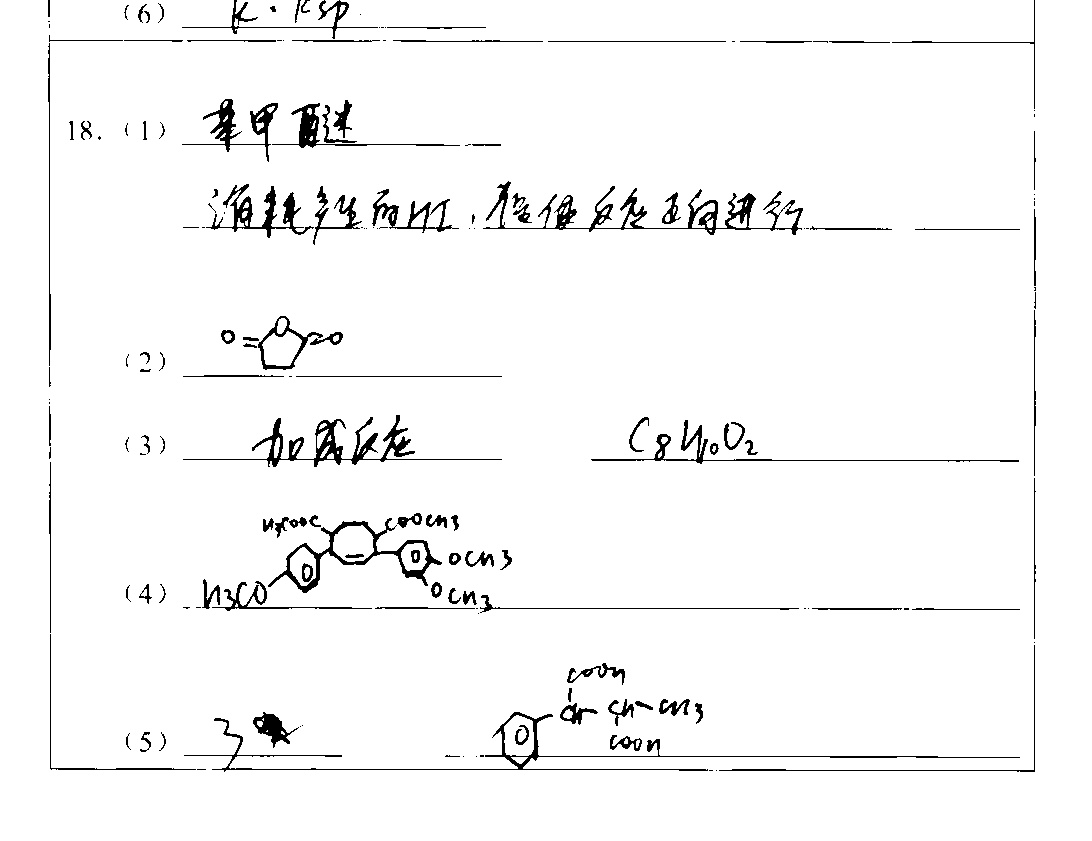 (6) K·Ksp
18.(1) 苯甲醚
消耗产生的HI,促使反应正向进行
(2) O= O =O
(3) 加成反应 C8H10O2
H3COOC COOCH3
OCH3
(4) H3CO OCH3
COOH
CH-CH-CH3
(5) 3 COOH